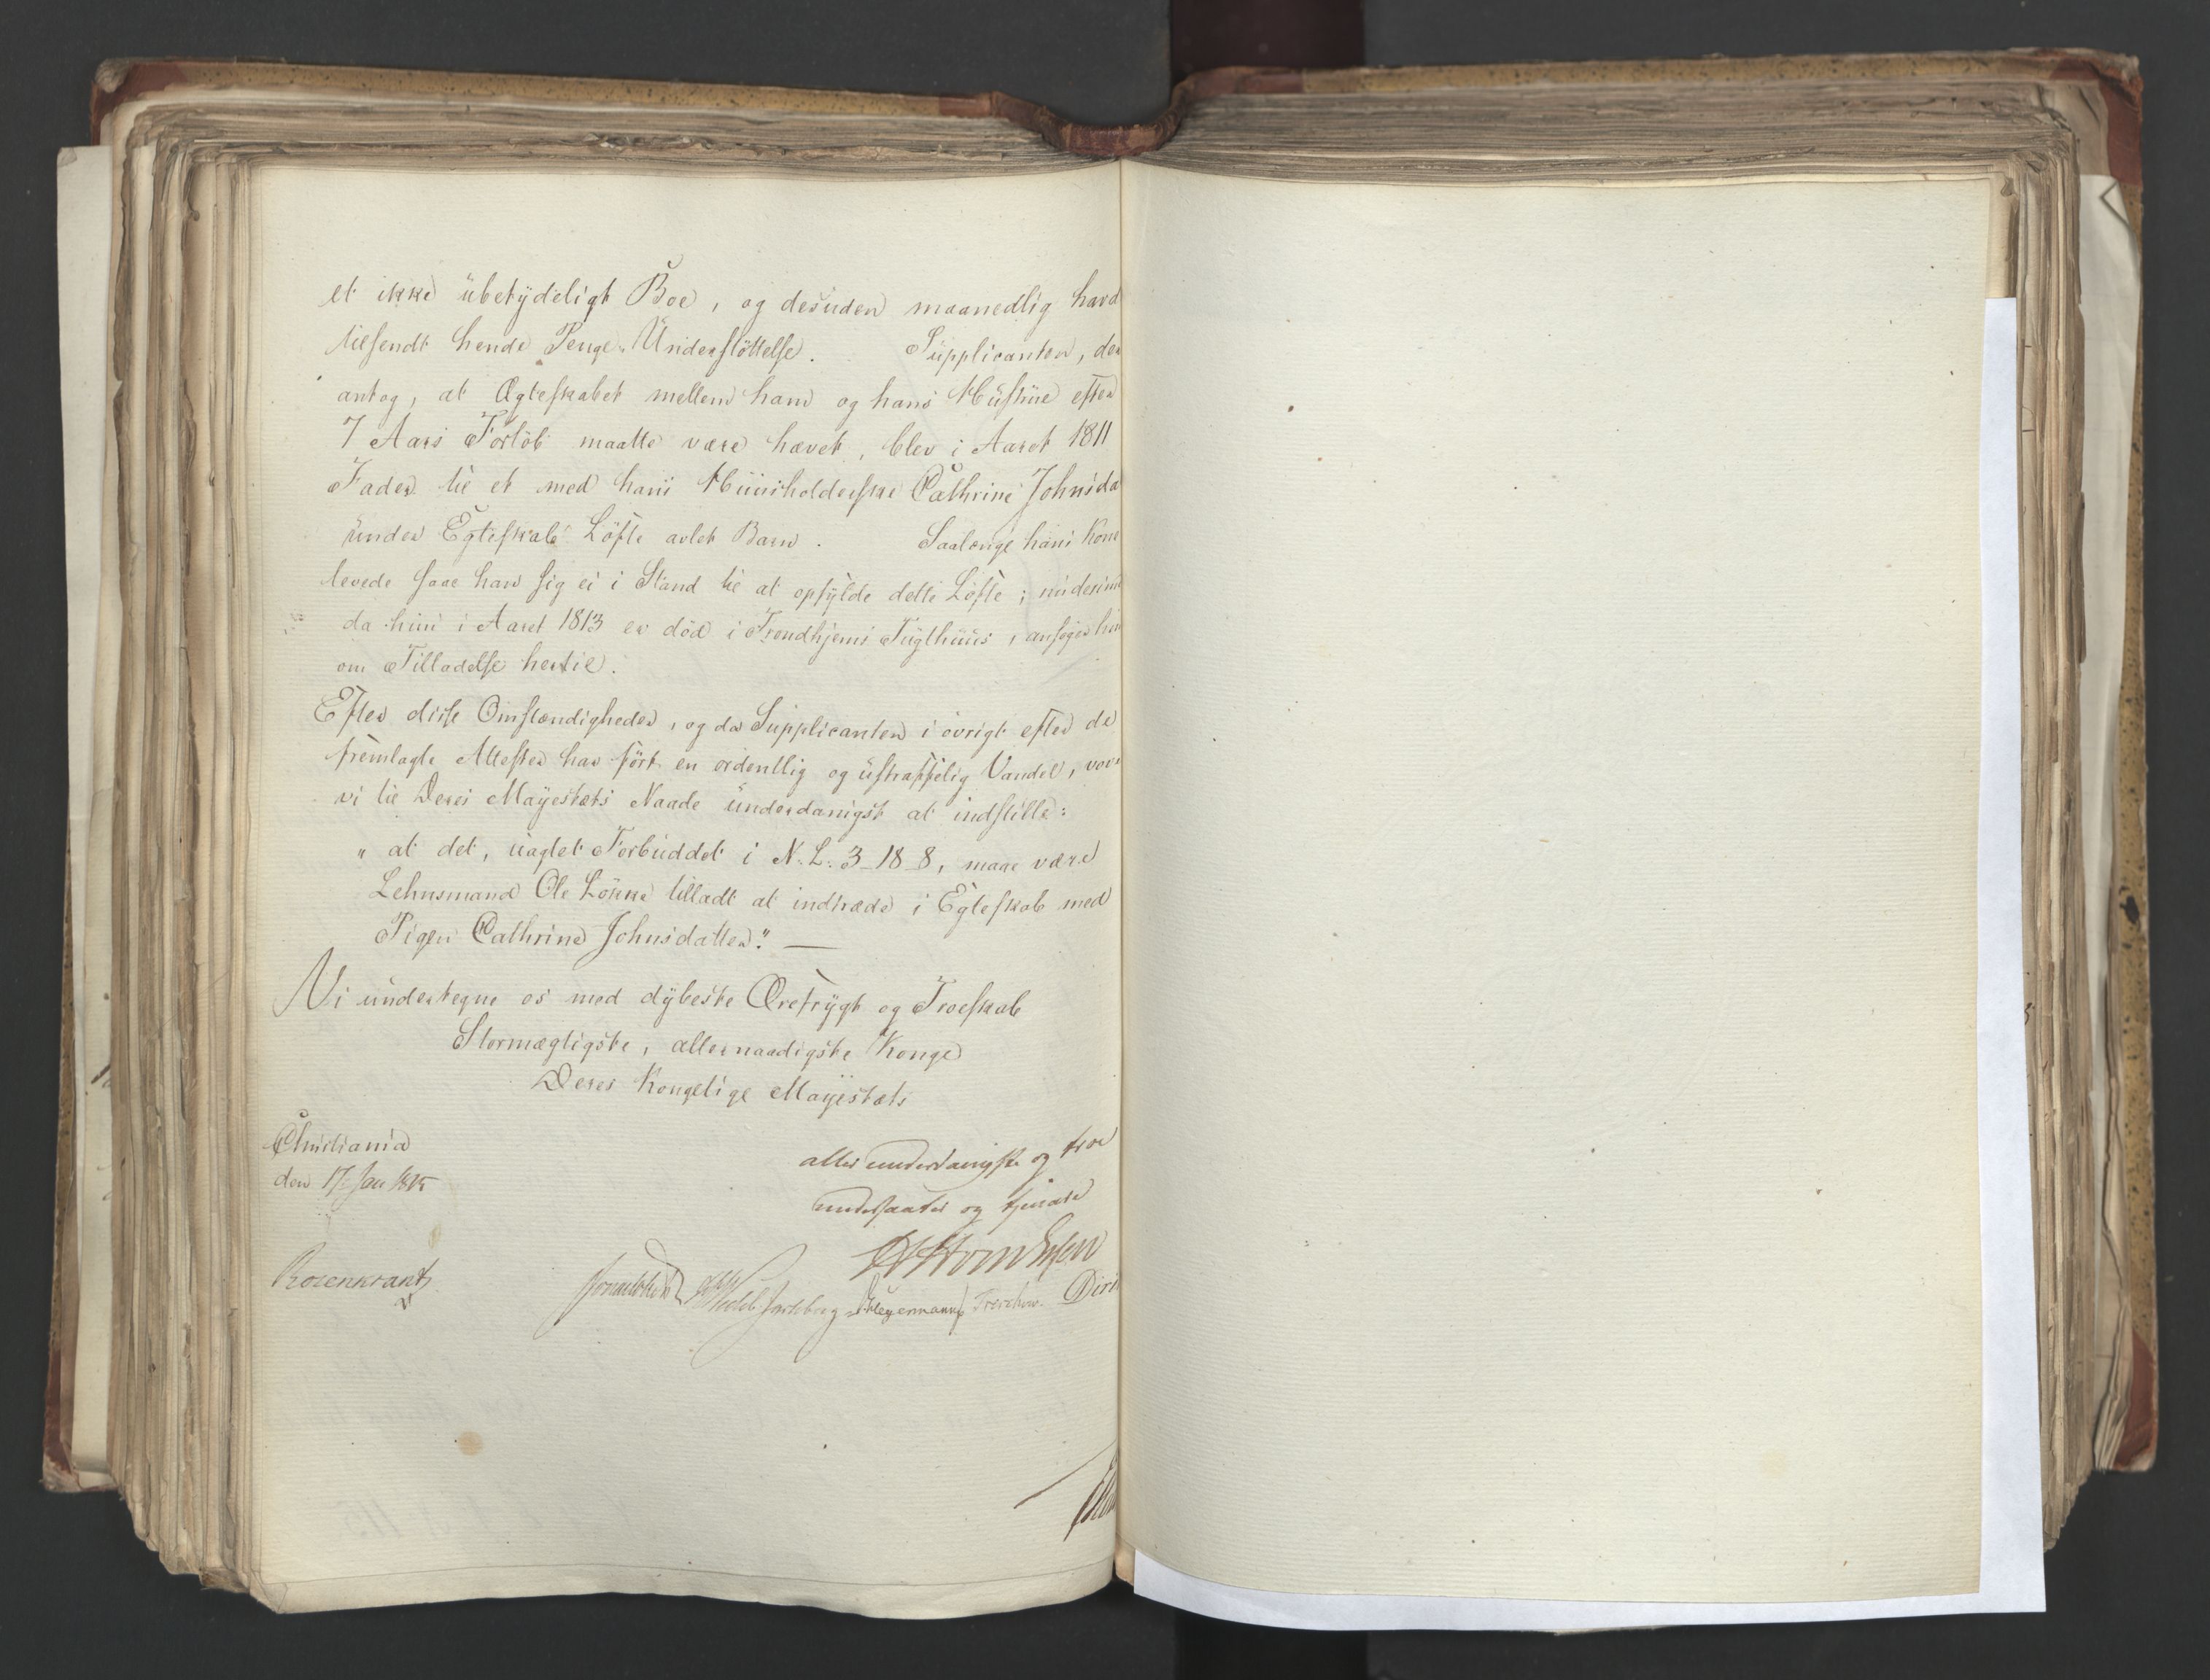 et ikke ubetydeligt Boe, og desuden maanedlig hard
tilsendt hende Penge-Understöttelse. Supplicanten, der
antog, at Ægteskabet mellem ham og hans Hustrue efter
7 Aars Forlöb maatte være hævet, blev i Aaret 1811
Fader til et med hans Huusholderske Cathrine Johnsda
under Egteskabs Löfte avlet Barn. Saalænge hans Kone
levede saae han sig ei i Stand til at opfylde dette Löfte;
da hun i Aaret 1813 er död i Trondhjems Tugthuus, ansöger han
om Tilladelse hertil.
Efter disse Omstændigheder, og da Supplicanten i övrigt efter de
fremlagte Attester har fört en ordentlig og ustraffelig Vandel, vove
vi til Deres Mayestæts Naade underdanigst at indstille:
" at det, uagtet Forbuddet i N. L. 3-18-8, maae være
Lehnsmand Ole Lökke tilladt at indtræde i Egteskab med
Pigen Cathrine Johnsdatter." —
Vi undertegne os med dybeste Ærefrygt og Troeskab
Stormægtigste, allernaadigste Konge
Deres Kongelige Mayestæts
Christiania
den 17 Jan 1815
allerunderdanigste og troe
undersaatter og tjenere
Rosenkrantz
Sommerhielm Wedel Jarlsberg Hegermann Treschow.